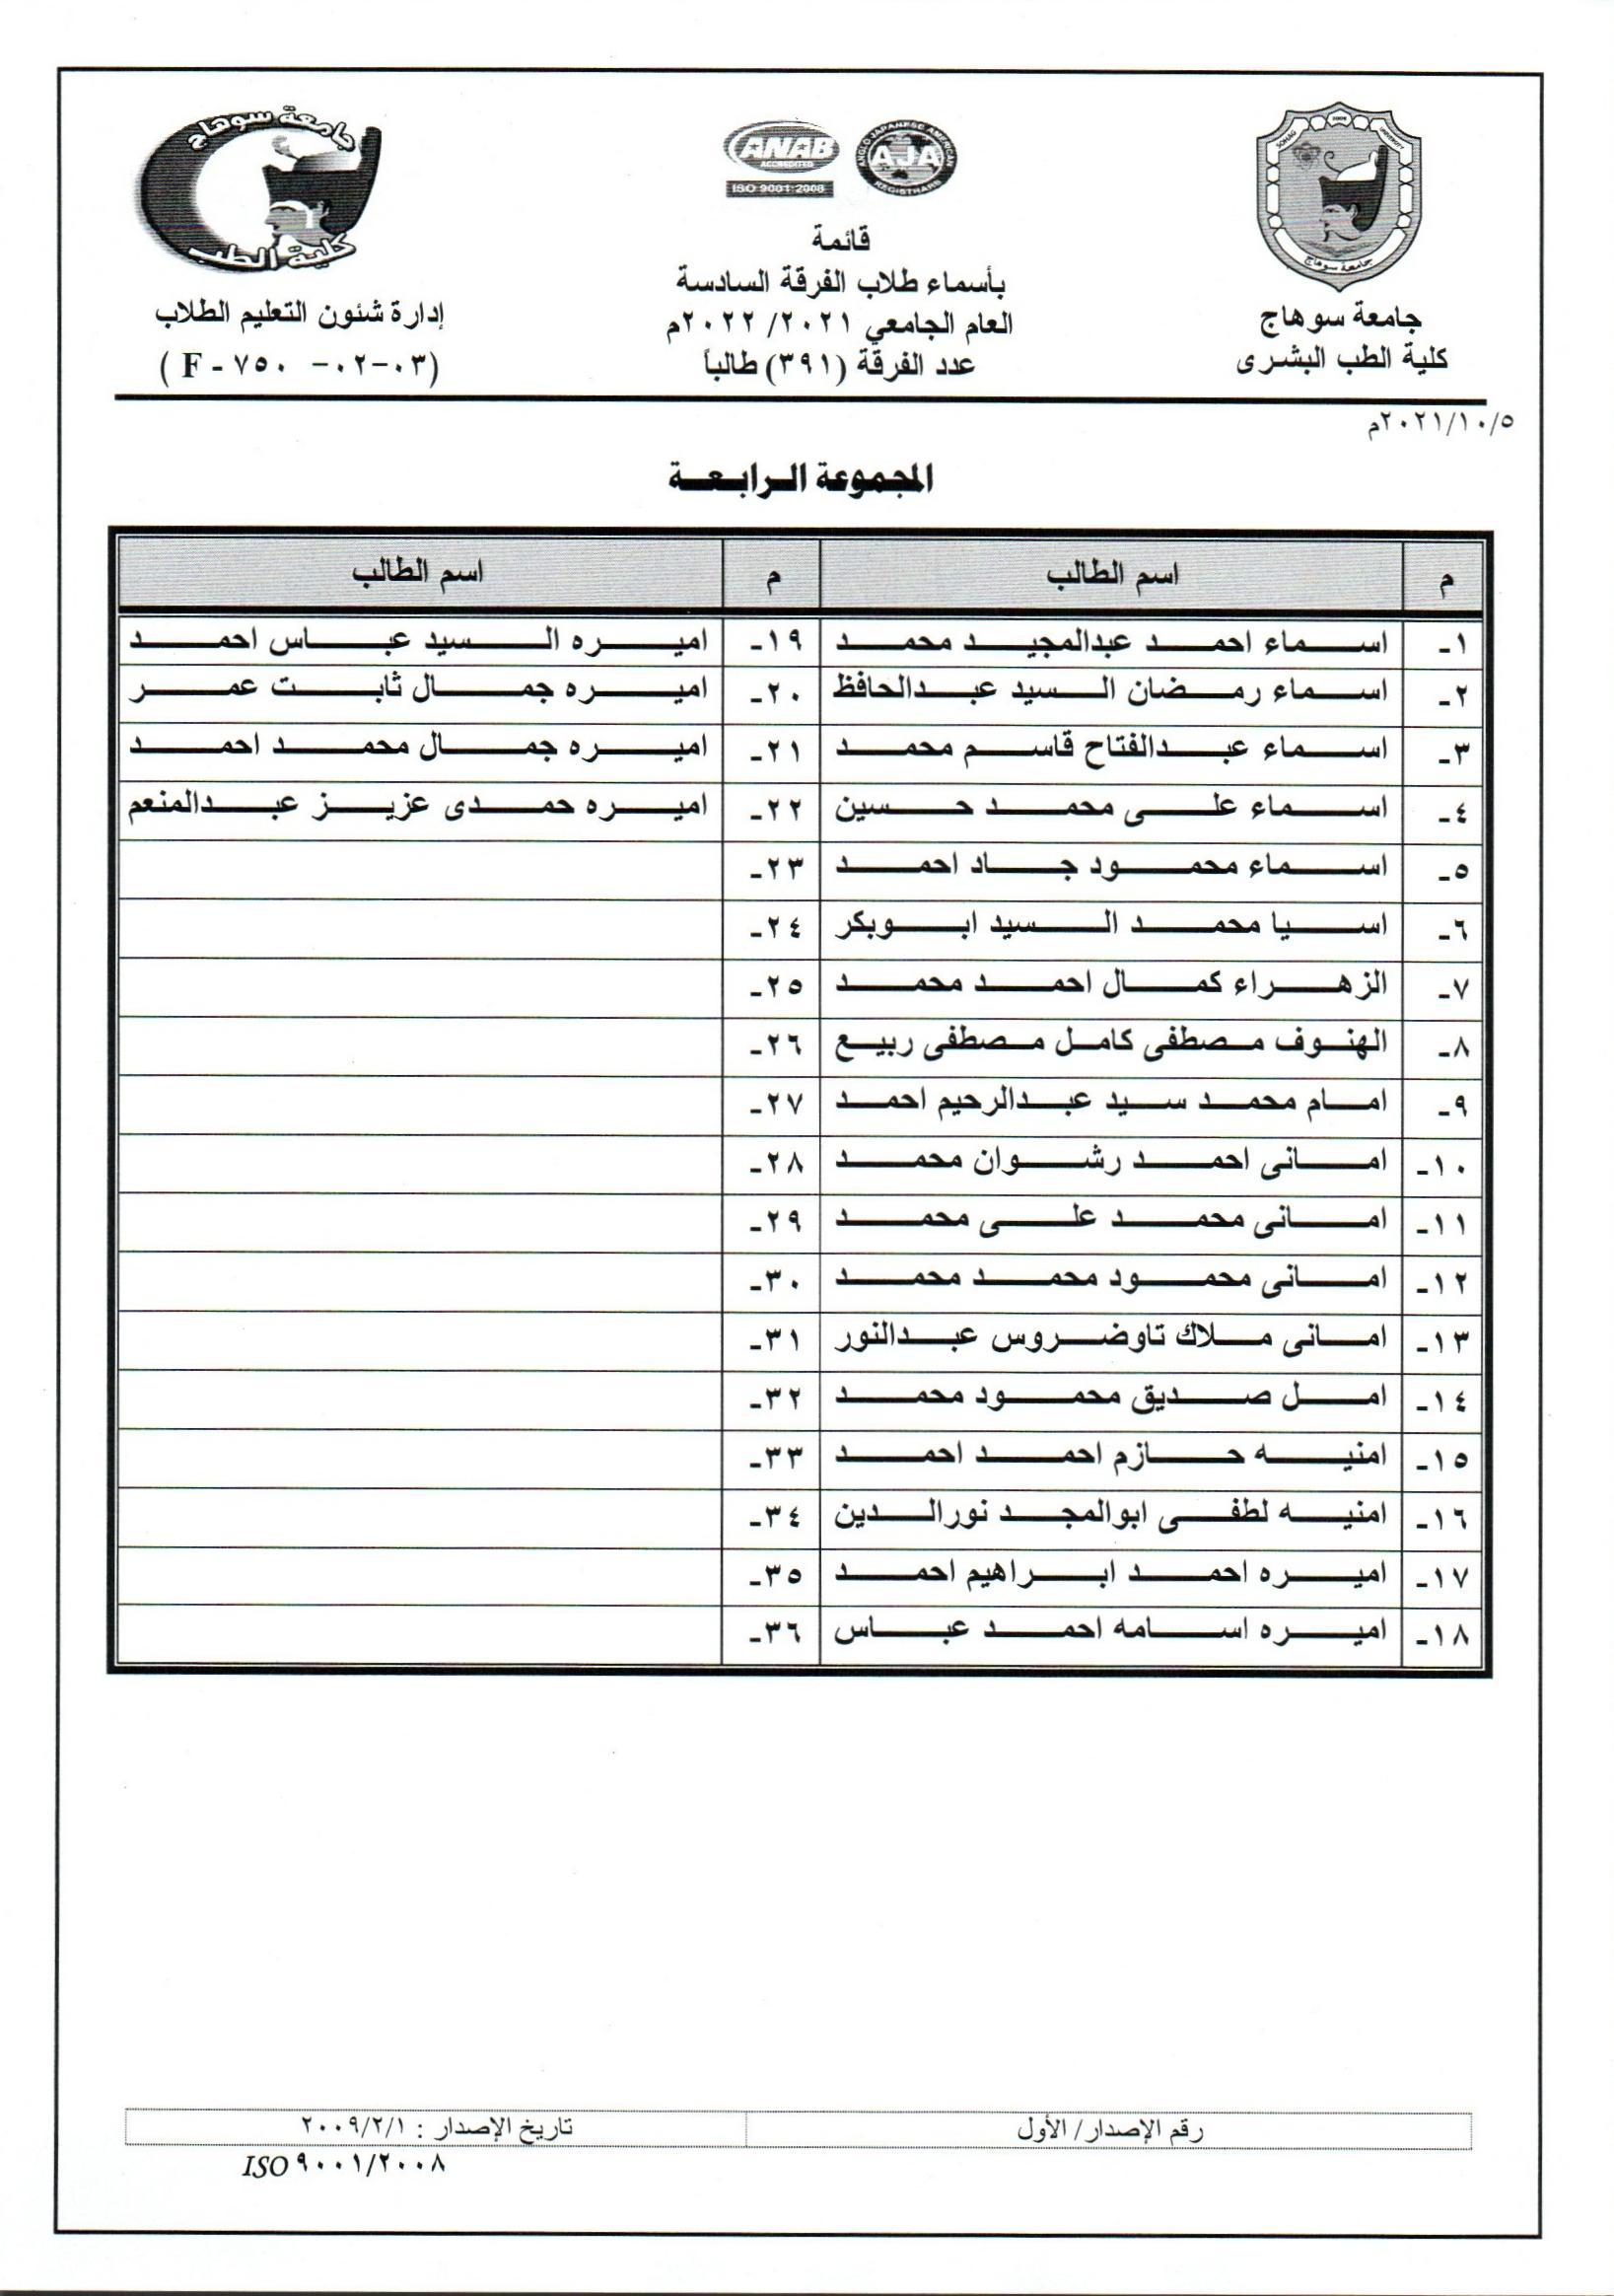 جامعة سوهاج
كلية الطب البشرى
SOHAG
2006
UNIVERSITY
جامعة سوهاج
ANAB
ACCREDITED
ISO 9001:2008
ANGLO JAPANESE AMERICAN
AJA
REGISTRARS
قائمة
بأسماء طلاب الفرقة السادسة
العام الجامعي ٢٠٢١/ ٢٠٢٢م
عدد الفرقة (٣٩١) طالباً
جامعة سوهاج
كلية الطب
إدارة شئون التعليم الطلاب
(F - ٧٥٠ -٠٢-٠٣)
٢٠٢١/١٠/٥م
المجموعة الرابعة
م اسم الطالب م اسم الطالب
١- اسماء احمد عبدالمجيد محمد ١٩- اميره السيد عباس احمد
٢- اسماء رمضان السيد عبدالحافظ ٢٠- اميره جمال ثابت عمر
٣- اسماء عبدالفتاح قاسم محمد ٢١- اميره جمال محمد احمد
٤- اسماء على محمد حسين ٢٢- اميره حمدى عزيز عبدالمنعم
٥- اسماء محمود جاد احمد ٢٣-
٦- اسيا محمد السيد ابوبكر ٢٤-
٧- الزهراء كمال احمد محمد ٢٥-
٨- الهنوف مصطفى كامل مصطفى ربيع ٢٦-
٩- امام محمد سيد عبدالرحيم احمد ٢٧-
١٠- امانى احمد رشوان محمد ٢٨-
١١- امانى محمد على محمد ٢٩-
١٢- امانى محمود محمد محمد ٣٠-
١٣- امانى ملاك تاوضروس عبدالنور ٣١-
١٤- امل صديق محمود محمد ٣٢-
١٥- امنيه حازم احمد احمد ٣٣-
١٦- امنيه لطفى ابوالمجد نورالدين ٣٤-
١٧- اميره احمد ابراهيم احمد ٣٥-
١٨- اميره اسامه احمد عباس ٣٦-
رقم الإصدار/ الأول تاريخ الإصدار : ٢٠٠٩/٢/١
ISO ٩٠٠١/٢٠٠٨